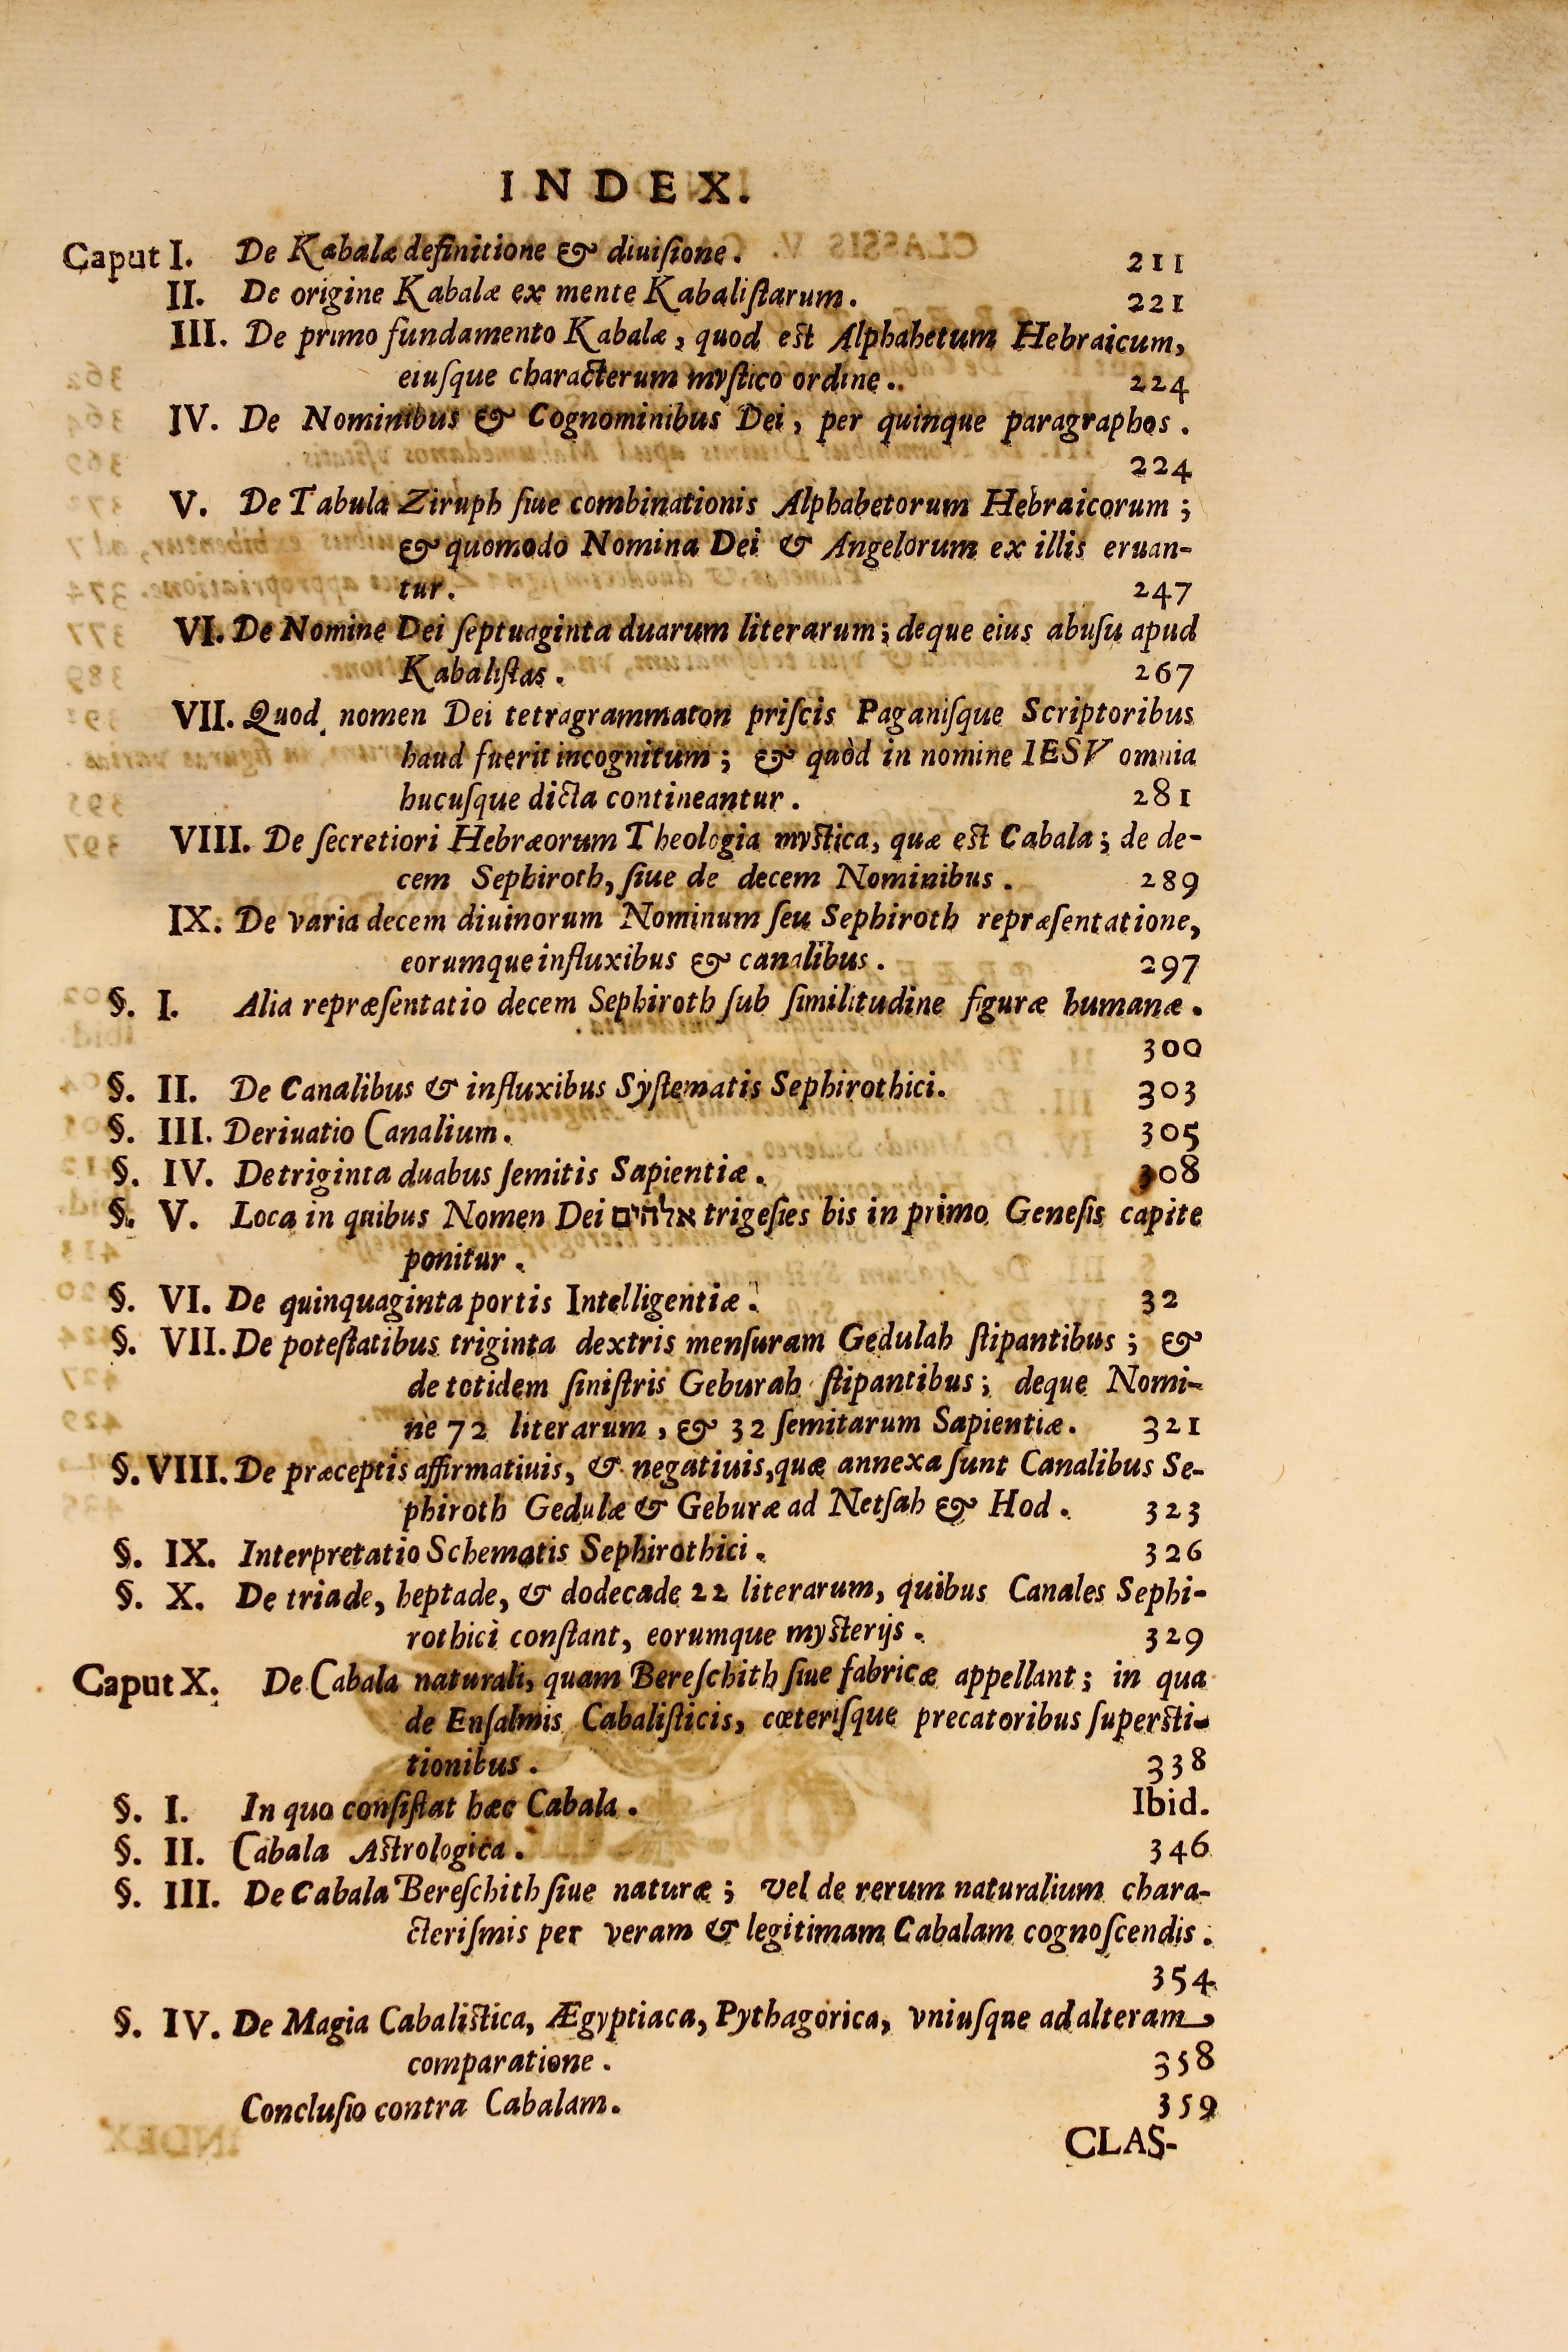 INDEX.
Caput I. De Kabalæ definitione & diuiſione. 211
II. De origine Kabalæ ex mente Kabaliſtarum. 221
III. De primo fundamento Kabalæ, quod eſt Alphabetum Hebraicum,
eiuſque characterum myſtico ordine.. 224
IV. De Nominibus & Cognominibus Dei, per quinque paragraphos.
224
V. De Tabula Ziruph ſiue combinationis Alphabetorum Hebraicorum;
& quomodo Nomina Dei & Angelorum ex illis eruan-
tur. 247
VI. De Nomine Dei ſeptuaginta duarum literarum; deque eius abuſu apud
Kabaliſtas. 267
VII. Quod nomen Dei tetragrammaton priſcis Paganiſque Scriptoribus
haud fuerit incognitum; & quòd in nomine IESV omnia
hucuſque dicta contineantur. 281
VIII. De ſecretiori Hebræorum Theologia myſtica, quæ eſt Cabala; de de-
cem Sephiroth, ſiue de decem Nominibus. 289
IX. De varia decem diuinorum Nominum ſeu Sephiroth repræſentatione,
eorumque influxibus & canalibus. 297
§. I. Alia repræſentatio decem Sephiroth ſub ſimilitudine figuræ humanæ.
300
§. II. De Canalibus & influxibus Syſtematis Sephirothici. 303
§. III. Deriuatio Canalium. 305
§. IV. De triginta duabus ſemitis Sapientiæ. 308
§. V. Loca in quibus Nomen Dei אלהים trigeſies bis in primo Geneſis capite
ponitur.
§. VI. De quinquaginta portis Intelligentiæ. 32
§. VII. De poteſtatibus triginta dextris menſuram Gedulah ſtipantibus; &
de totidem ſiniſtris Geburah ſtipantibus; deque Nomi-
ne 72 literarum, & 32 ſemitarum Sapientiæ. 321
§. VIII. De præceptis affirmatiuis, & negatiuis, quæ annexa ſunt Canalibus Se-
phiroth Gedulæ & Geburæ ad Netſah & Hod. 323
§. IX. Interpretatio Schematis Sephirothici. 326
§. X. De triade, heptade, & dodecade 22 literarum, quibus Canales Sephi-
rothici conſtant, eorumque myſterijs. 329
Caput X. De Cabala naturali, quam Bereſchith ſiue fabricæ appellant; in qua
de Enſalmis Cabaliſticis, cœteriſque precatoribus ſuperſti-
tionibus. 338
§. I. In quo conſiſtat hæc Cabala. Ibid.
§. II. Cabala Aſtrologica. 346
§. III. De Cabala Bereſchith ſiue naturæ; vel de rerum naturalium chara-
cteriſmis per veram & legitimam Cabalam cognoſcendis.
354
§. IV. De Magia Cabaliſtica, Ægyptiaca, Pythagorica, vniuſque ad alteram
comparatione. 358
Concluſio contra Cabalam. 359
CLAS-